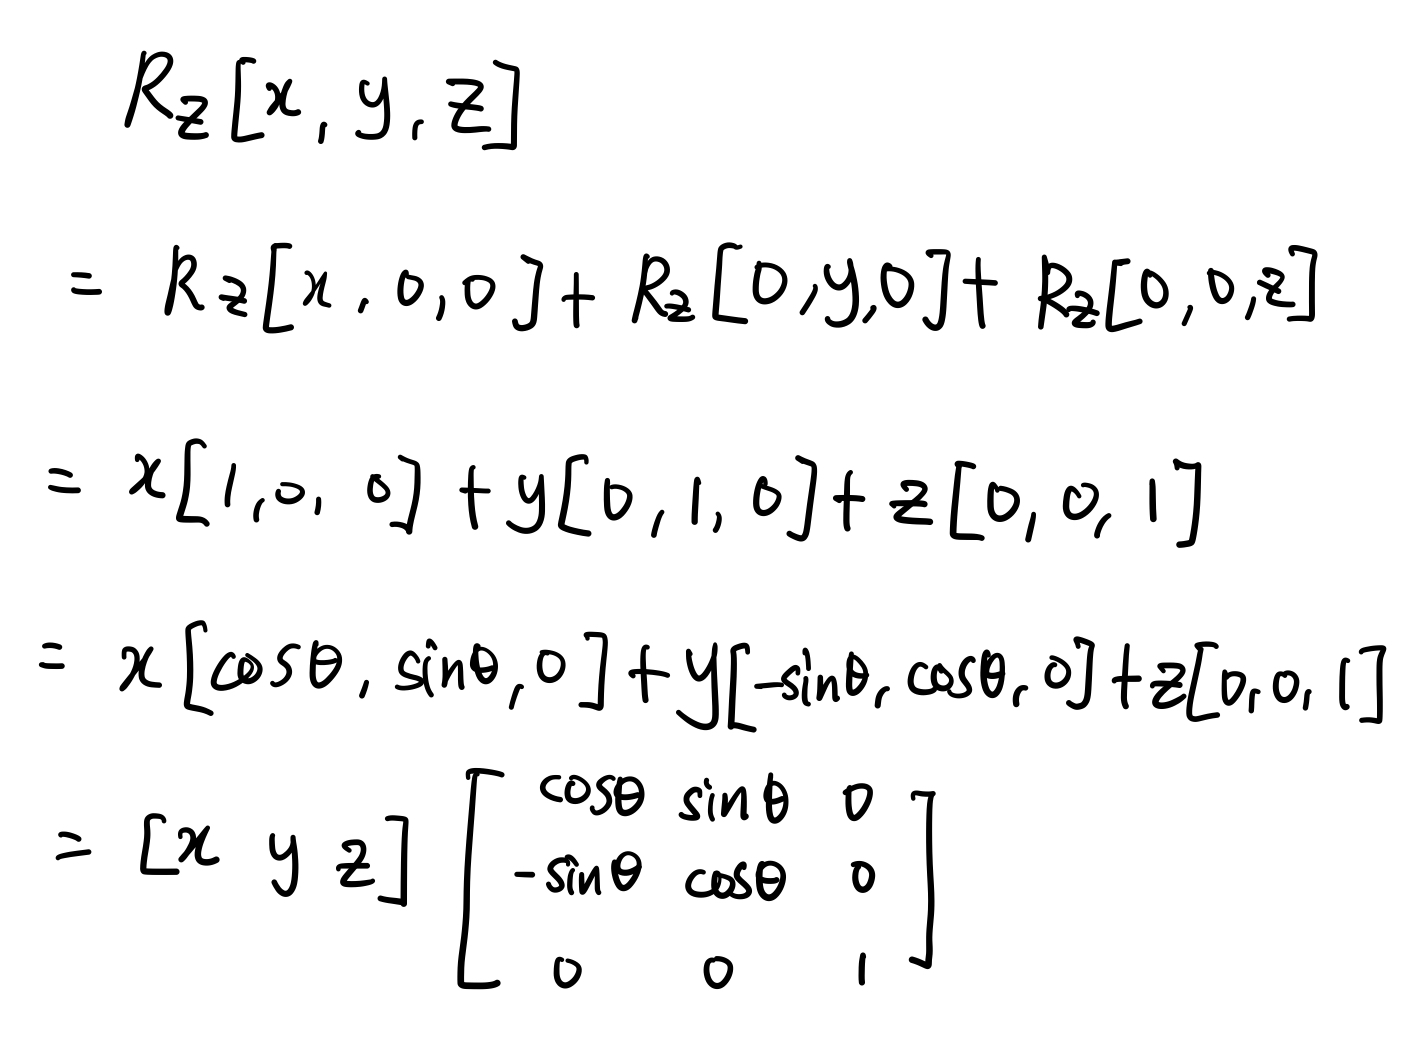 R_z[x, y, z]
= R_z[x, 0, 0] + R_z[0, y, 0] + R_z[0, 0, z]
= x[1, 0, 0] + y[0, 1, 0] + z[0, 0, 1]
= x[cosθ, sinθ, 0] + y[-sinθ, cosθ, 0] + z[0, 0, 1]
= [x y z] [cosθ sinθ 0
-sinθ cosθ 0
0 0 1]